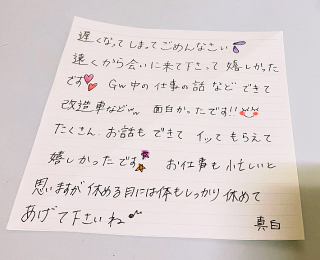 遅くなってしまってごめんなさい
遠くから会いに来て下さって嬉しかった
です GW中の仕事の話などできて
改造車などww 面白かったです!!
たくさんお話もできてイッてもらえて
嬉しかったです お仕事も忙しいと
思いますが休める日には体もしっかり休めて
あげて下さいね♪
真白